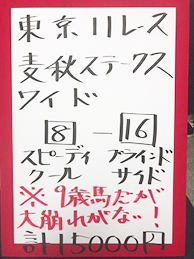 東京11レース
麦秋ステークス
ワイド
8 — 16
スピーディ ブラインド
クール サイド
※9歳馬だが
大崩れがない!
計15000円